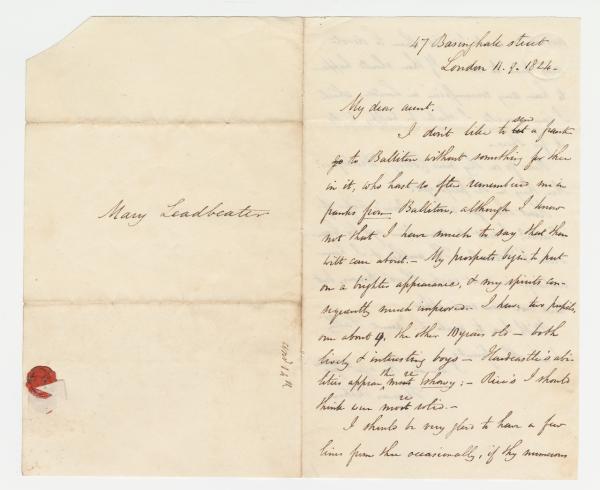 Mary Leadbeater
47 Basinghale street
London 11. 9. 1824 -
My dear aunt.
I don't like to let a frank
see
go to Ballitore without something for thee
in it, who hast so often remembered me in
franks from Ballitore, although I know
not that I have much to say that thou
wilt care about. - My prospects begin to put
on a brighter appearance, & my spirits con-
sequently much improved. I have two pupils,
one about 9, the other 10 years old - both
lively & interesting boys - Hardcastle's abi-
lities appear the more showy: - Rice's I should
think even more solid. -
I should be very glad to have a few
lines from thee occasionally, if thy numerous